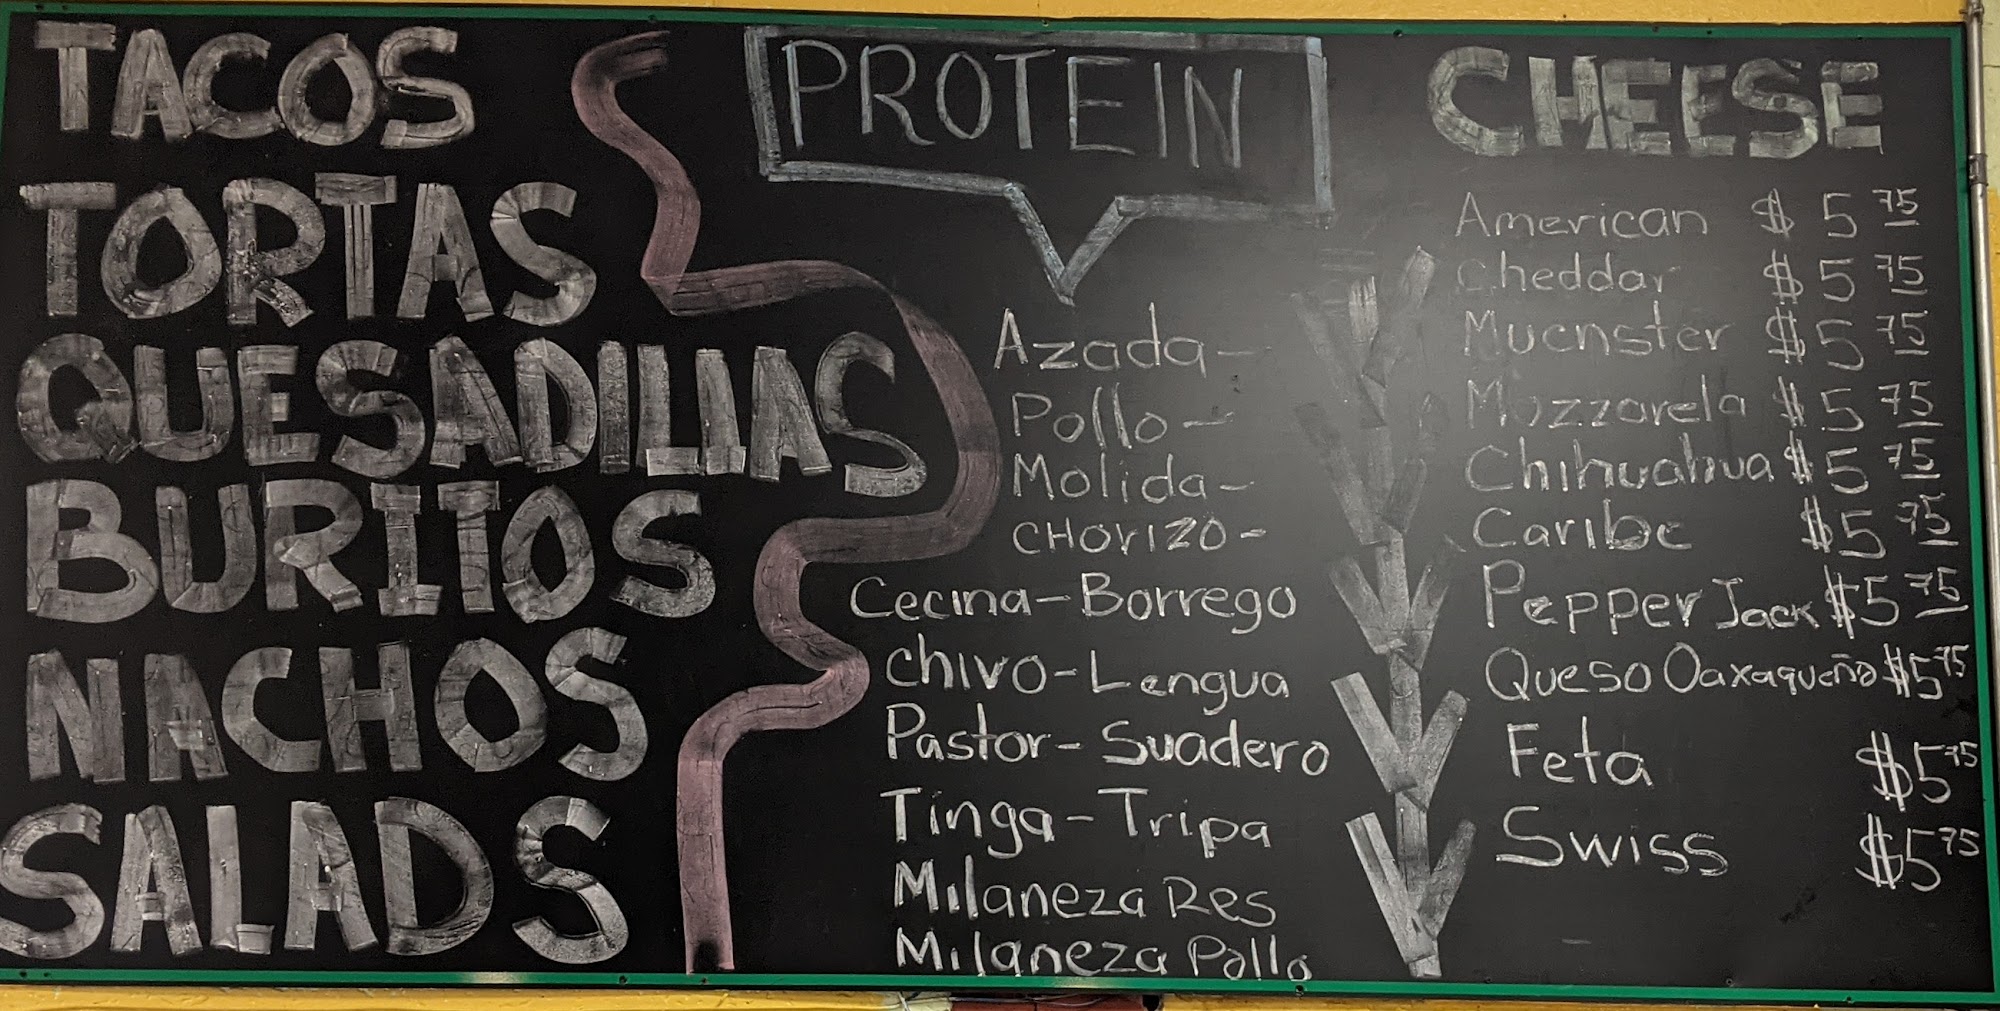 TACOS
TORTAS
QUESADILLAS
BURITOS
NACHOS
SALADS
PROTEIN
Azada-
Pollo-
Molida-
CHORIZO-
Cecina-Borrego
Chivo-Lengua
Pastor-Suadero
Tinga-Tripa
Milaneza Res
Milaneza Pollo
CHEESE
American $5 75
Cheddar $5 75
Muenster $5 75
Mozzarela $5 75
Chihuahua $5 75
Caribe $5 75
Pepper Jack $5 75
Queso Oaxaqueño $5 75
Feta $5 75
Swiss $5 75